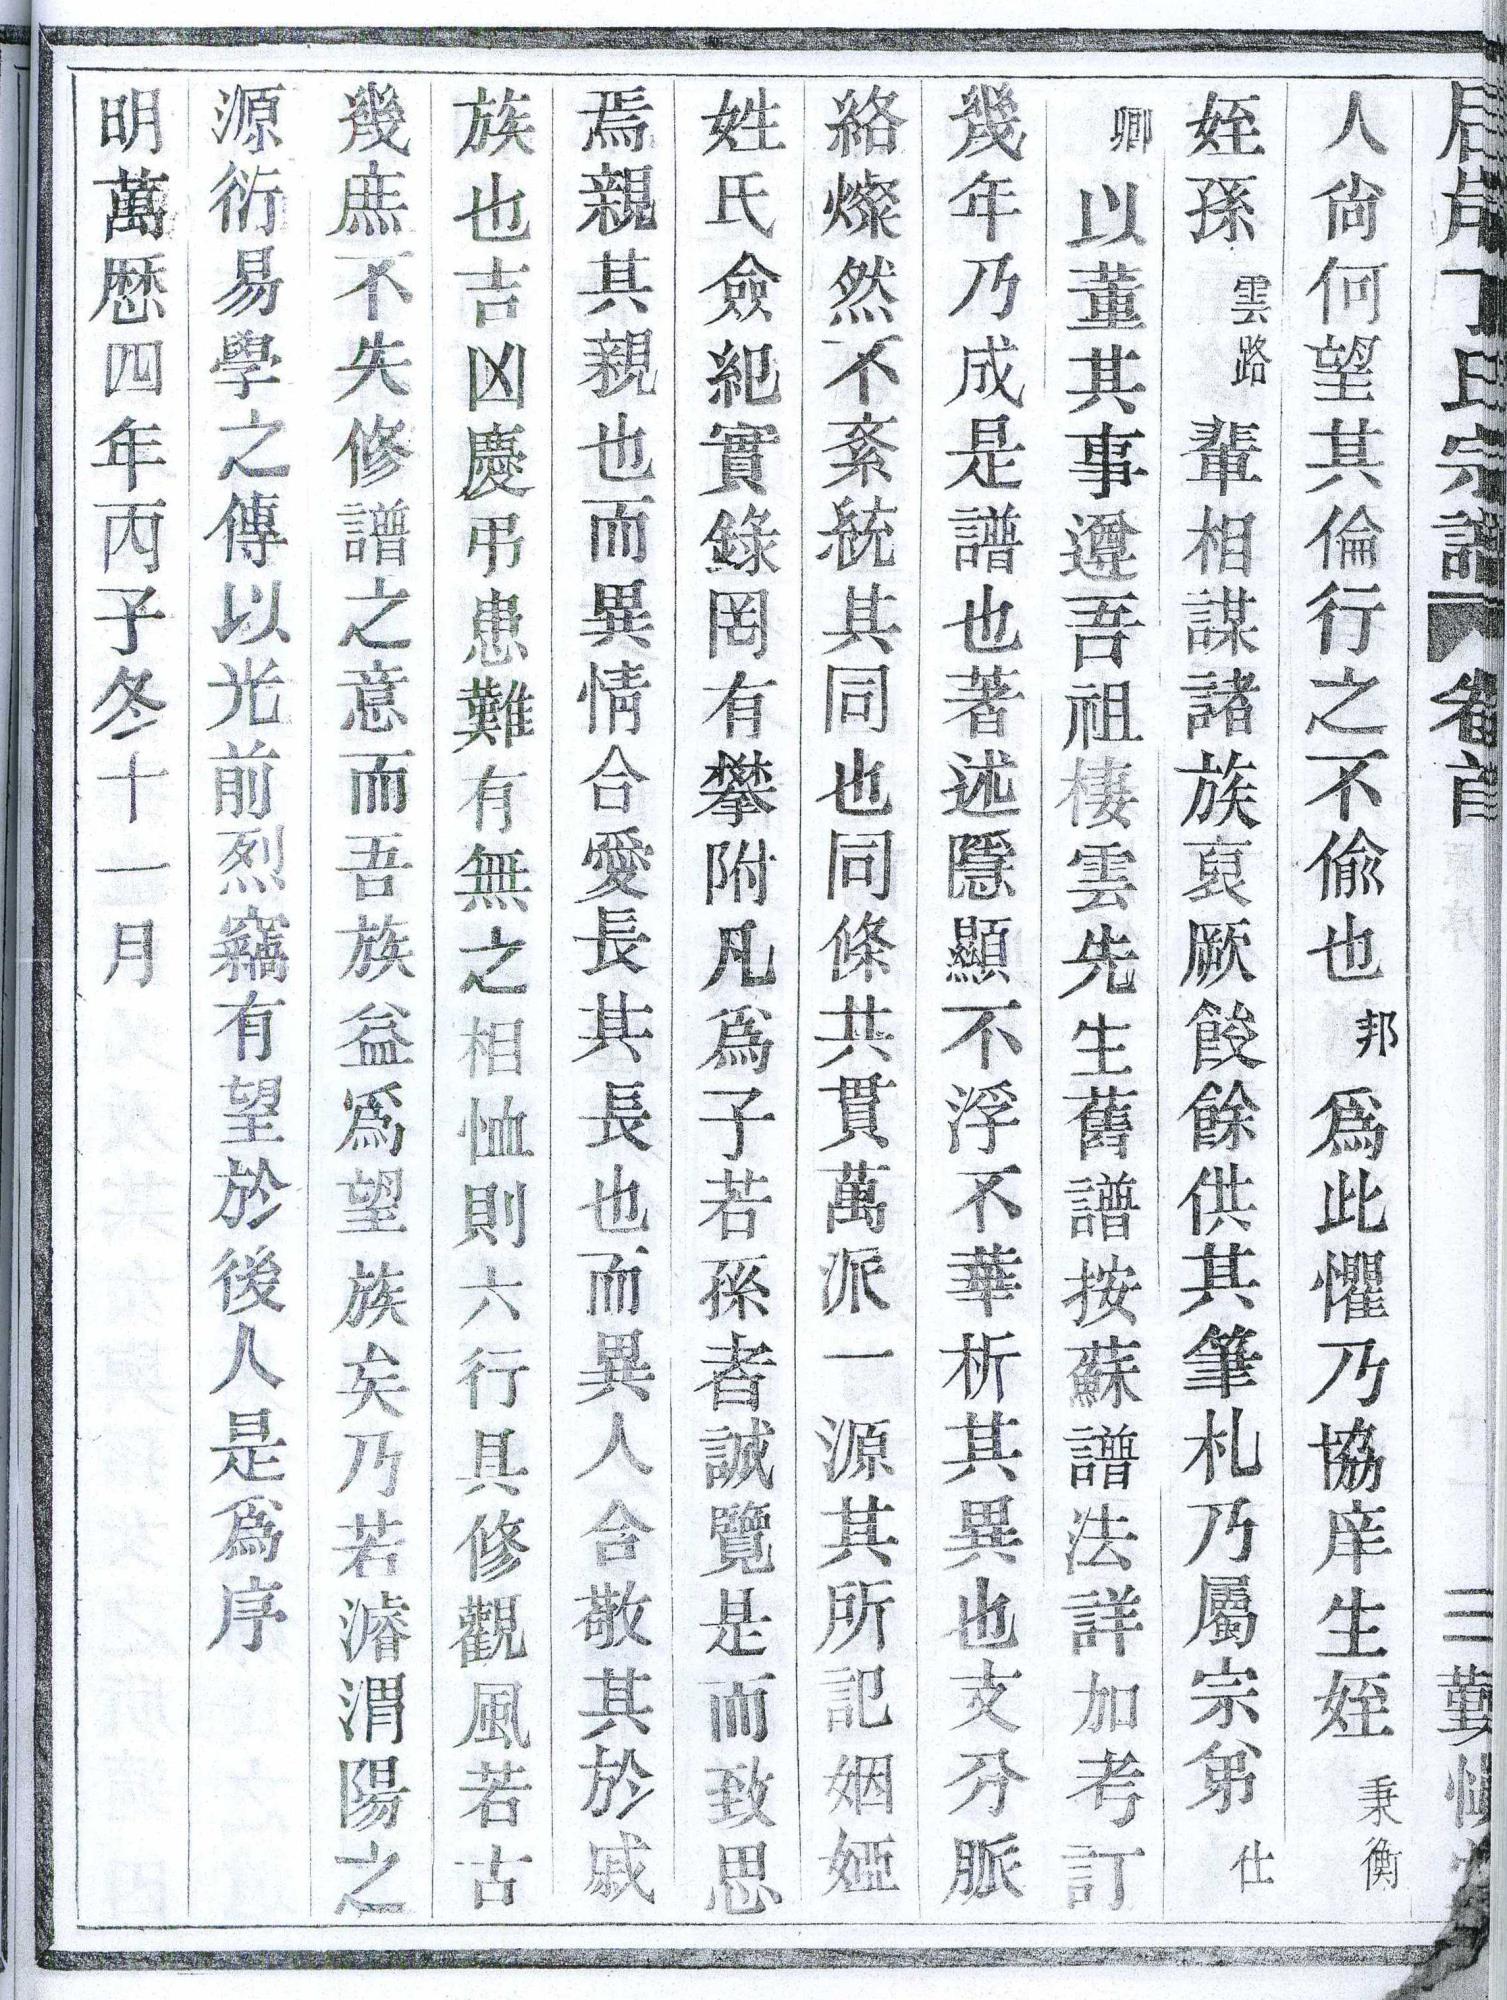 丁氏宗譜 卷首 三
人尙何望其倫行之不偸也邦爲此懼乃協庠生姪秉衡
姪孫雲路輩相謀諸族裒厥餕餘供其筆札乃屬宗弟仕
卿以董其事遵吾祖棲雲先生舊譜按蘇譜法詳加考訂
幾年乃成是譜也著述隱顯不浮不華析其異也支分脈
絡燦然不紊統其同也同條共貫萬派一源其所記姻婭
姓氏僉紀實錄罔有攀附凡爲子若孫者誠覽是而致思
焉親其親也而異情合愛長其長也而異人合敬其於戚
族也吉凶慶弔患難有無之相恤則六行具修觀風若古
幾庶不失修譜之意而吾族益爲望族矣乃若濬渭陽之
源衍易學之傳以光前烈竊有望於後人是爲序
明萬厯四年丙子冬十一月